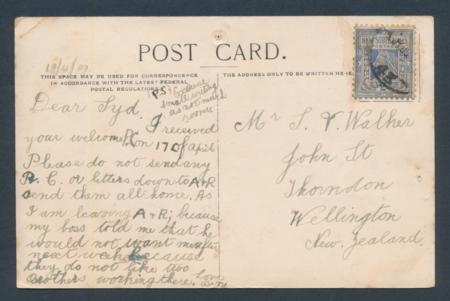 18/4/07
POST CARD.
THIS SPACE MAY BE USED FOR CORRESPONDENCE
IN ACCORDANCE WITH THE LATEST FEDERAL
POSTAL REGULATIONS.
THE ADDRESS ONLY TO BE WRITTEN HERE.
P.S. Excuse
small writing
as not much
room
Dear Syd,
I received
your welcome P.C. on 17 of april
Please do not send any
P. C. or letters down to A & R
send them all home. As
I am leaving A & R; because
my boss told me that he
would not want me after
next week because
they do not like two
brothers working there. Love
Mr S. V. Walker
John St
Thorndon
Wellington
New Zealand.